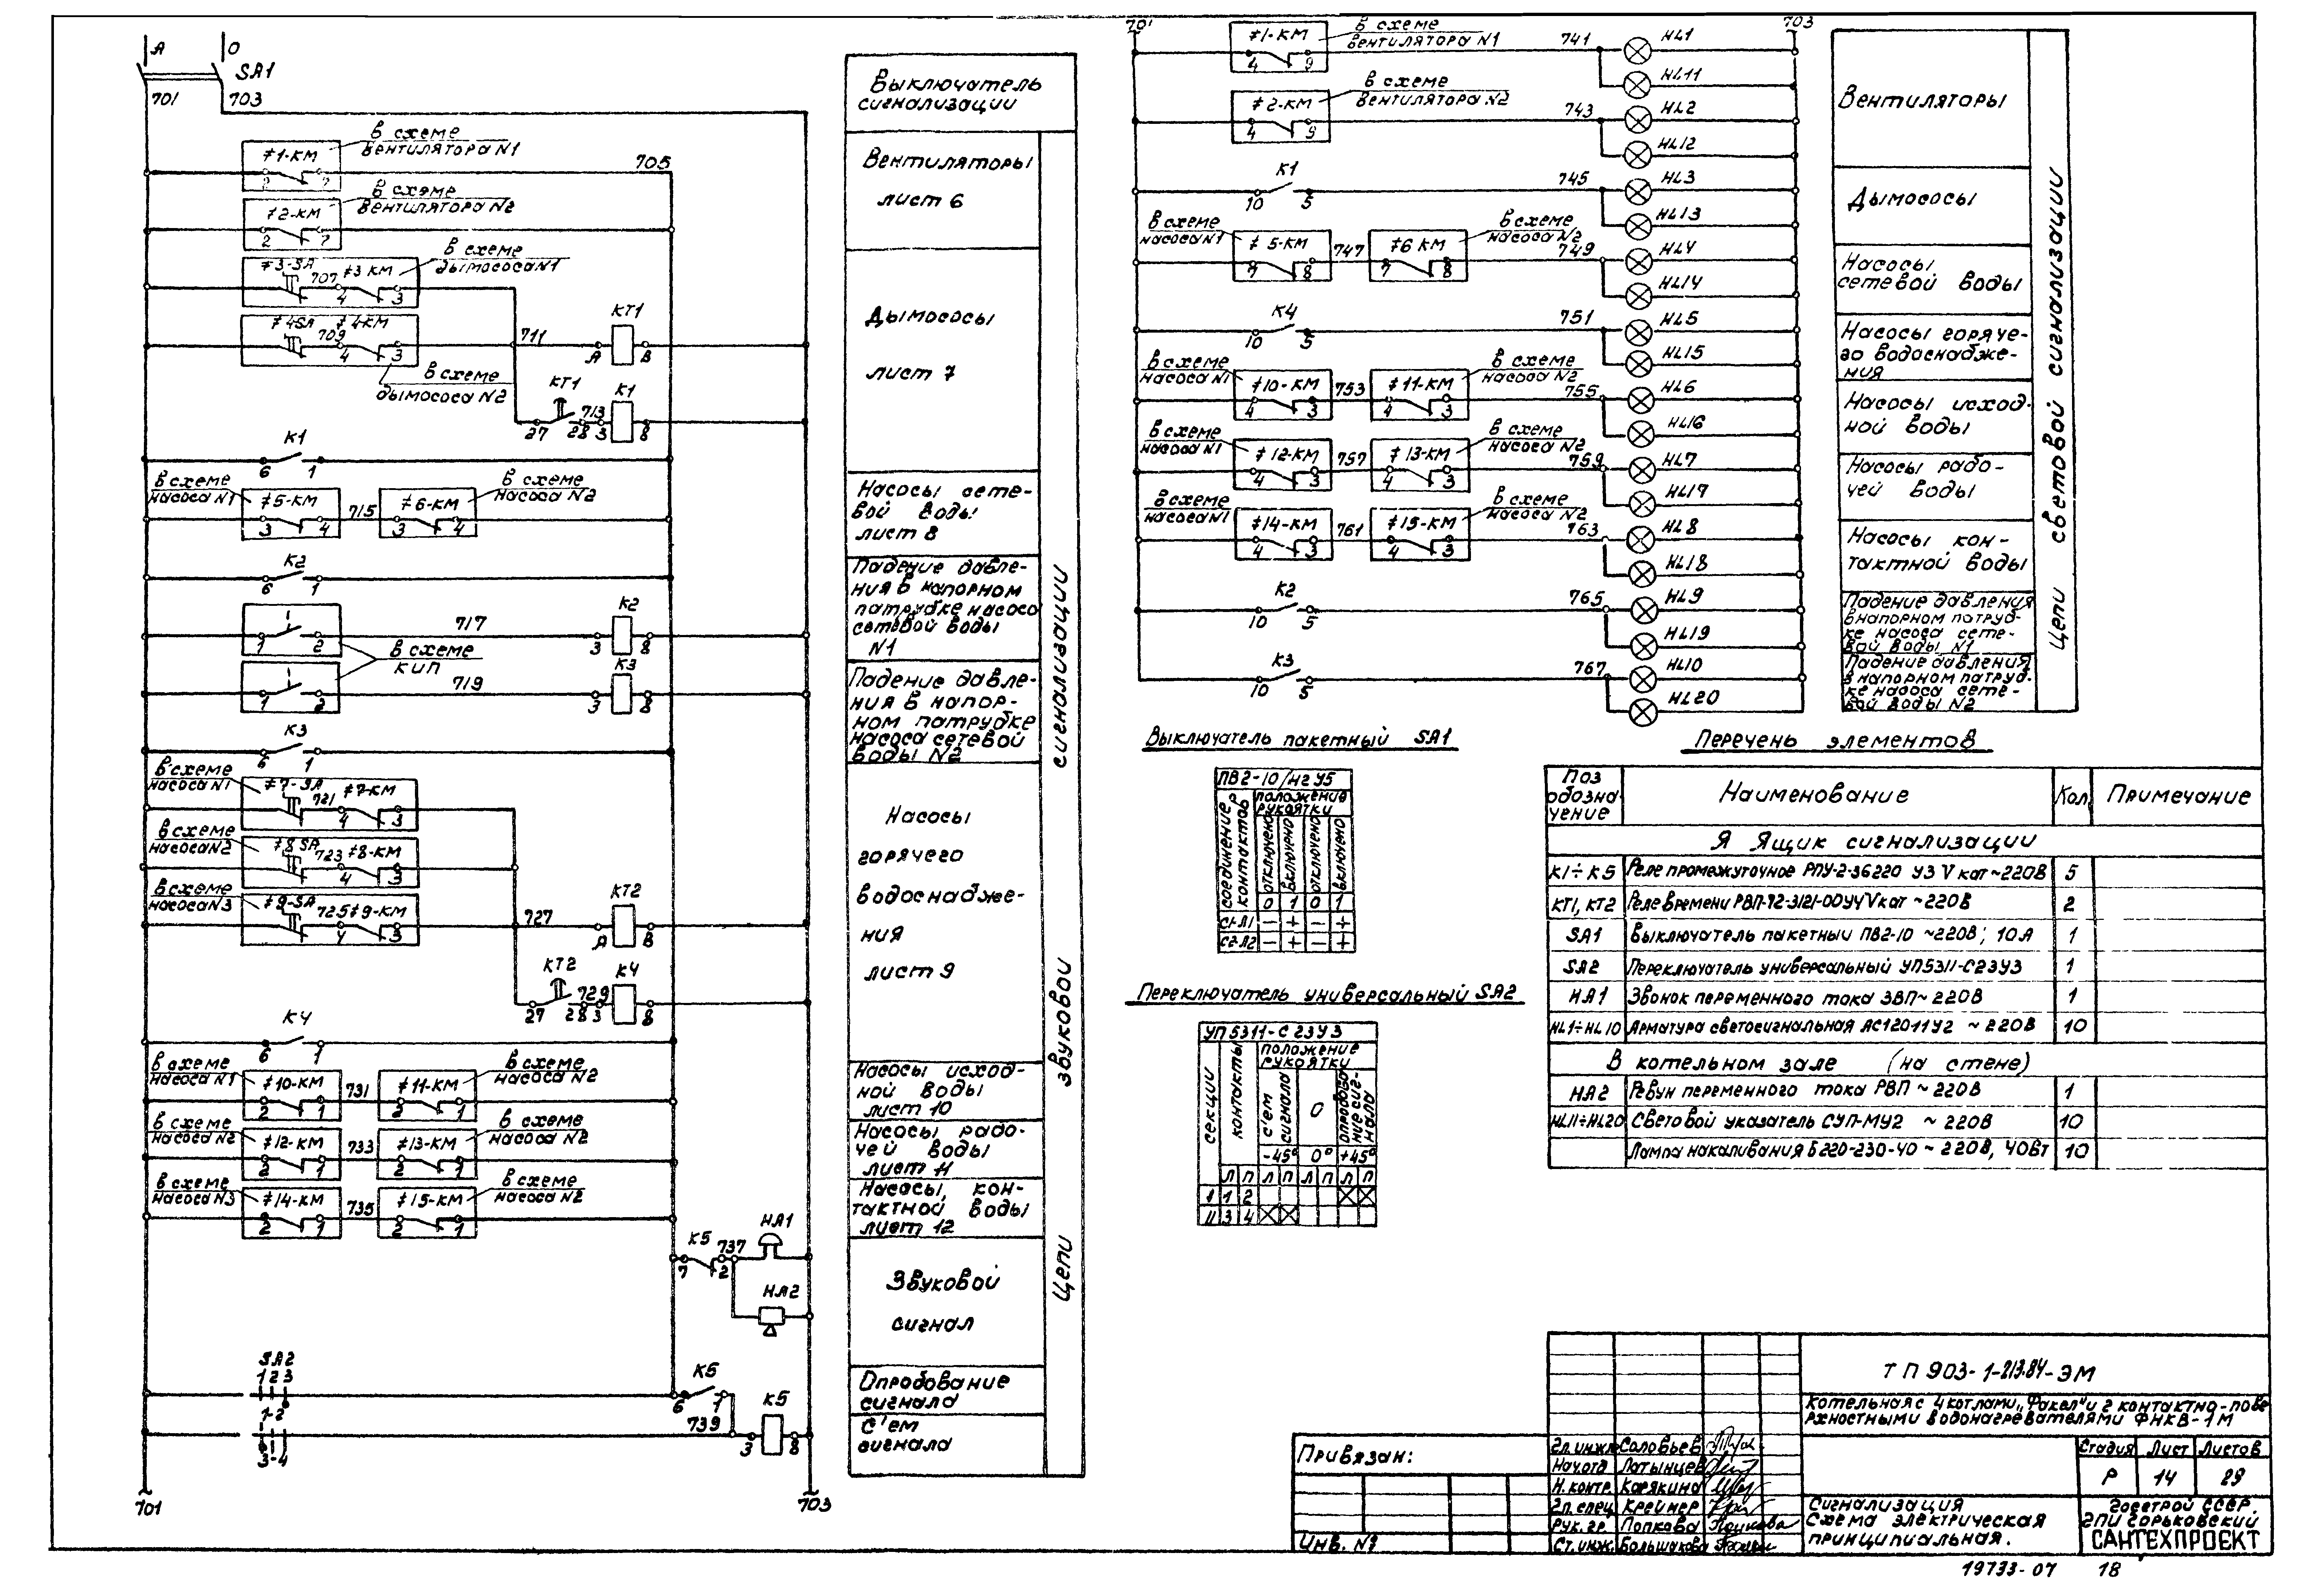 А
О
SA1
701
703
≠1-КМ
в схеме
вентилятора N1
2
7
705
≠2-КМ
в схеме
вентилятора N2
2
7
≠3-SA
707
≠3 КМ
4
3
в схеме
дымососа N1
≠4SA
≠4-КМ
709
4
3
в схеме
дымососа N2
711
КТ1
А
В
КТ1
27
28
713
3
К1
8
К1
6
1
в схеме
насоса N1
≠5-КМ
3
4
715
≠6-КМ
3
4
в схеме
насоса N2
К2
6
1
1
2
717
3
К2
8
в схеме
КИП
1
2
719
3
К3
8
К3
6
1
в схеме
насоса N1
≠7-SA
721
≠7-КМ
4
3
в схеме
насоса N2
≠8 SA
723
≠8-КМ
4
3
в схеме
насоса N3
≠9-SA
725
≠9-КМ
4
3
727
КТ2
А
В
КТ2
27
28
729
3
К4
8
К4
6
1
в схеме
насоса N1
≠10-КМ
2
1
731
≠11-КМ
2
1
в схеме
насоса N2
в схеме
насоса N2
≠12-КМ
2
1
733
≠13-КМ
2
1
в схеме
насоса N2
в схеме
насоса N3
≠14-КМ
2
1
735
≠15-КМ
2
1
в схеме
насоса N2
К5
7
2
737
НА1
НА2
SA2
1 2 3
1-2
3-4
К5
6
1
739
3
К5
8
701
703
Выключатель
сигнализации
Вентиляторы
лист 6
Дымососы
лист 7
Насосы сете-
вой воды
лист 8
Падение давле-
ния в напорном
патрубке насоса
сетевой воды
N1
Падение давле-
ния в напор-
ном патрубке
насоса сетевой
воды N2
Насосы
горячего
водоснабже-
ния
лист 9
Насосы исход-
ной воды
лист 10
Насосы рабо-
чей воды
лист 11
Насосы, кон-
тактной воды
лист 12
Звуковой
сигнал
Опробование
сигнала
С'ем
сигнала
Цепи звуковой сигнализации
701
703
≠1-КМ
4
9
в схеме
вентилятора N1
741
HL1
HL11
≠2-КМ
4
9
в схеме
вентилятора N2
743
HL2
HL12
К1
10
5
745
HL3
HL13
в схеме
насоса N1
≠5-КМ
7
8
747
≠6 КМ
7
8
в схеме
насоса N2
749
HL4
HL14
К4
10
5
751
HL5
HL15
в схеме
насоса N1
≠10-КМ
4
3
753
≠11-КМ
4
3
в схеме
насоса N2
755
HL6
HL16
в схеме
насоса N1
≠12-КМ
4
3
757
≠13-КМ
4
3
в схеме
насоса N2
759
HL7
HL17
в схеме
насоса N1
≠14-КМ
4
3
761
≠15-КМ
4
3
в схеме
насоса N2
763
HL8
HL18
К2
10
5
765
HL9
HL19
К3
10
5
767
HL10
HL20
Вентиляторы
Дымососы
Насосы
сетевой воды
Насосы горяче-
го водоснабже-
ния
Насосы исход-
ной воды
Насосы рабо-
чей воды
Насосы кон-
тактной воды
Падение давления
в напорном патруб-
ке насоса сете-
вой воды N1
Падение давления
в напорном патруб-
ке насоса сете-
вой воды N2
Цепи световой сигнализации
Выключатель пакетный SA1
ПВ2-10/Н2 У5
соединение контактов
положение
рукоятки
отключено
включено
отключено
включено
0 1 0 1
С1-Л1 − + − +
С2-Л2 − + − +
Переключатель универсальный SA2
УП5311-С23У3
секции
контакты
положение
рукоятки
с'ем сигнала
0
опробование сигнала
-45° 0° +45°
Л П Л П Л П Л П
I 1 2
II 3 4
Перечень элементов
Поз обозна-чение
Наименование
Кол.
Примечание
Я Ящик сигнализации
К1÷К5 Реле промежуточное РПУ-2-36220 У3 V кат ~220В 5
КТ1, КТ2 Реле времени РВП-72-3121-00У4 V кат ~220В 2
SA1 Выключатель пакетный ПВ2-10 ~220В; 10А 1
SA2 Переключатель универсальный УП5311-С23У3 1
НА1 Звонок переменного тока ЗВП ~ 220В 1
HL1÷HL10 Арматура светосигнальная АС12011У2 ~ 220В 10
В котельном зале (на стене)
НА2 Ревун переменного тока РВП ~ 220В 1
HL11÷HL20 Световой указатель СУП-МУ2 ~ 220В 10
Лампа накаливания Б220-230-40 ~ 220В, 40Вт 10
ТП 903-1-213.84-ЭМ
Котельная с 4 котлами „Факел" и 2 контактно-пове
рхностными водонагревателями ФНКВ-1М
Привязан:
Инв. N°
Гл. инж. Соловьев
Нач.отд Латынцев
Н. контр. Корякина
Гл. спец. Крейнер
Рук. гр. Попкова
Ст. инж. Большакова
Стадия Лист Листов
Р 14 29
Сигнализация
Схема электрическая
принципиальная.
Госстрой СССР.
ГПИ Горьковский
САНТЕХПРОЕКТ
19733-07 18